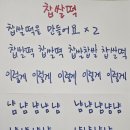 찹쌀떡
찹쌀떡을 만들어요 × 2
찹쌀떡 찹쌀떡 찹쌀찹쌀 찹쌀떡
이렇게 이렇게 이렇게 이렇게
냠냠냠냠냠 냠냠냠냠냠
냠냠냠냠냠 냠냠냠냠냠